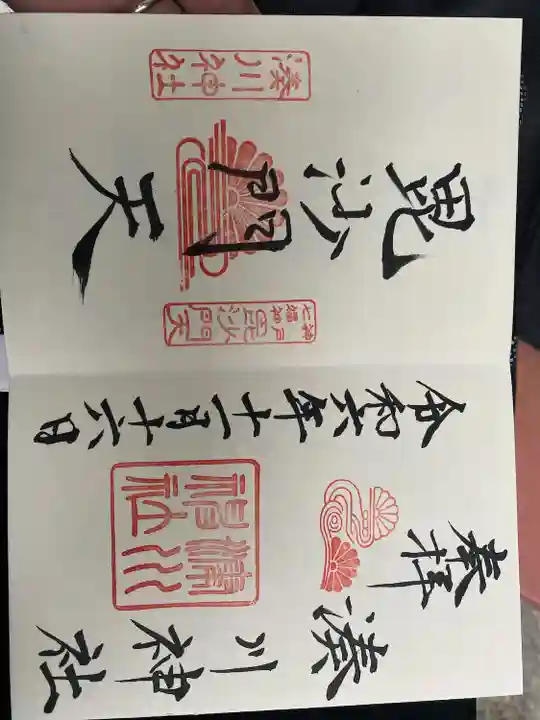 奉拝
湊川神社
湊川神社
令和六年十一月十六日
神戸七福神 毘沙門天
毘沙門天
湊川神社